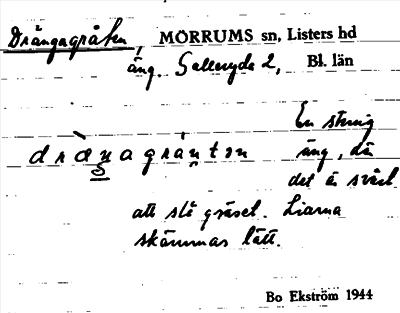 Drängagråten, MÖRRUMS sn, Listers hd
äng. Sellenyda 2, Bl. län
En stenig
dræŋagråntən äng, där
det är svårt
att slå gräset. Liarna
skämmas lätt.
Bo Ekström 1944